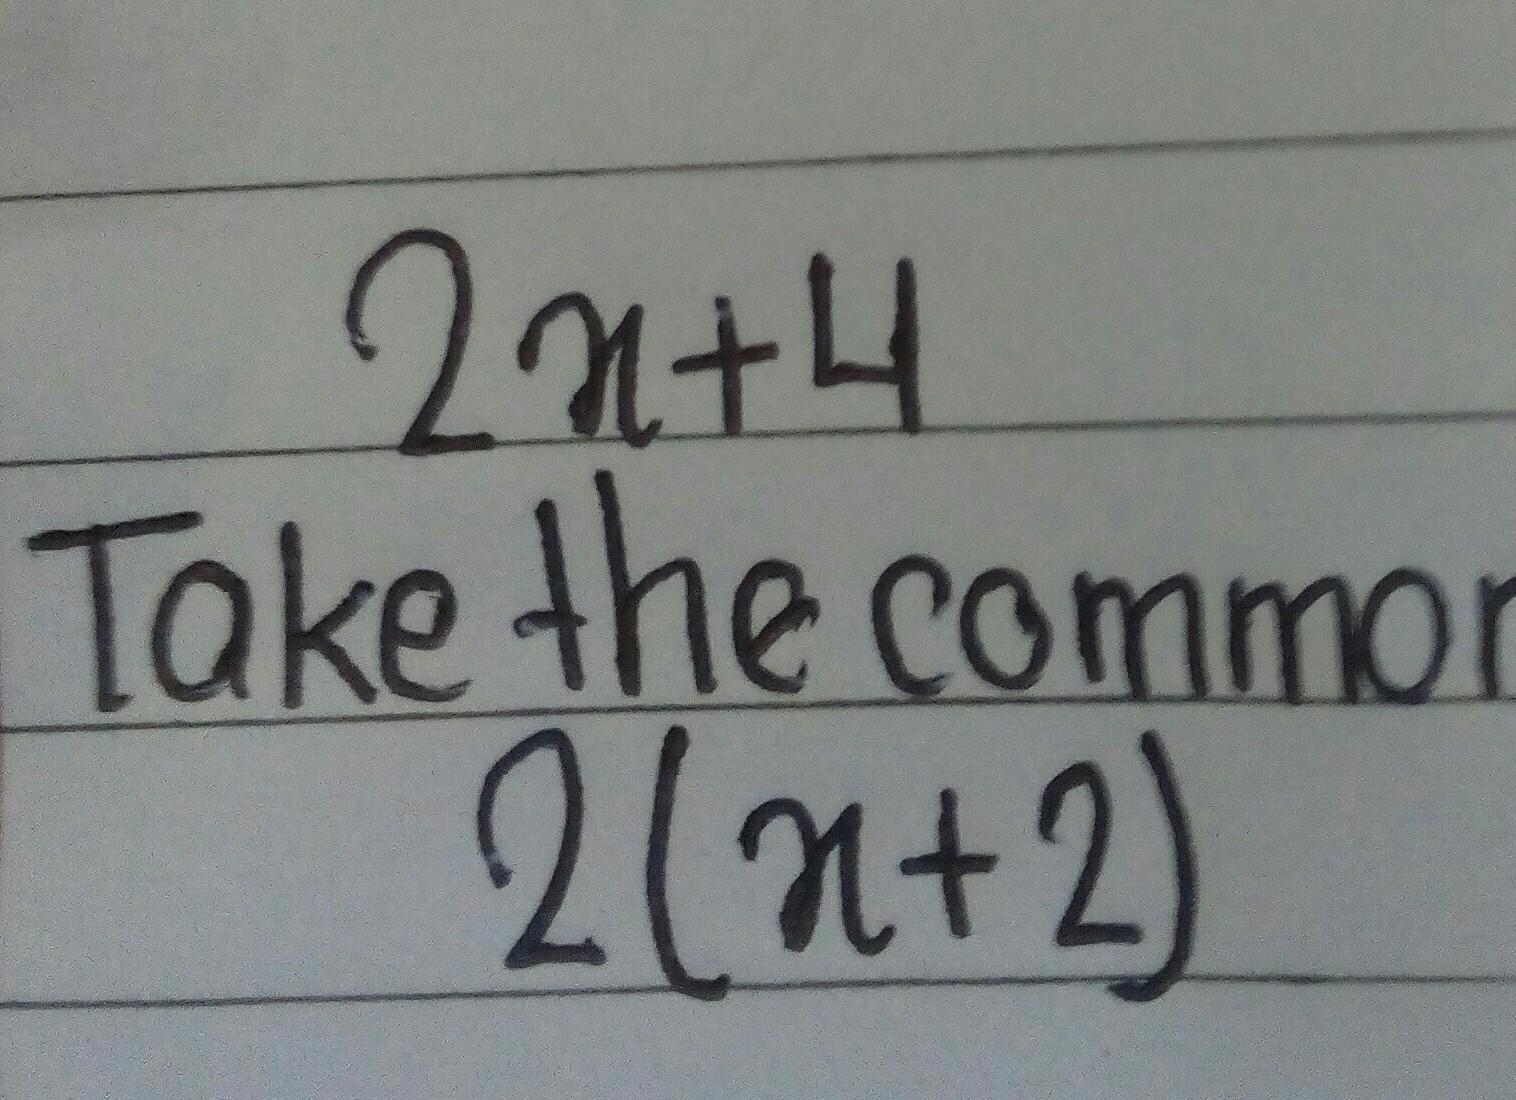 2x+4
Take the common
2(x+2)